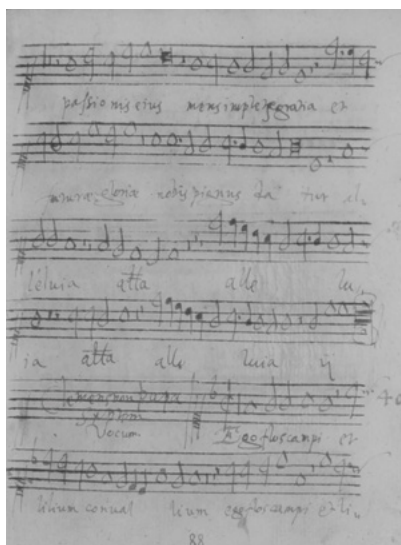 passionis eius mens impletr gratia et
futurae gloriae nobis pignus da tur al.
leluia atta alle lu
ia atta alle luia ij
Clemens non Papa
Septem
Vocum
Ego flos campi et
lilium conual lium ego flos campi et li..
88